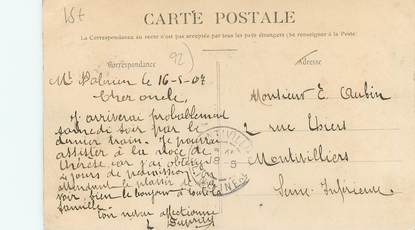 15t
CARTE POSTALE
La Correspondance au recto n'est pas acceptée par tous les pays étrangers (Se renseigner à la Poste)
92
Correspondance
Adresse
Mt le 16-5-07
Cher oncle,
J'arriverai probablement
samedi soir par le
dernier train. Je pourrai
assister à la noce de
car j'ai obtenu
jours de permission. En
attendant le plaisir de
voir, bien le bonjour à toute la
famille.
Ton neveu affectionné
Monsieur E. Aubin
2 rue Thiers
Montivilliers
Seine Inférieure